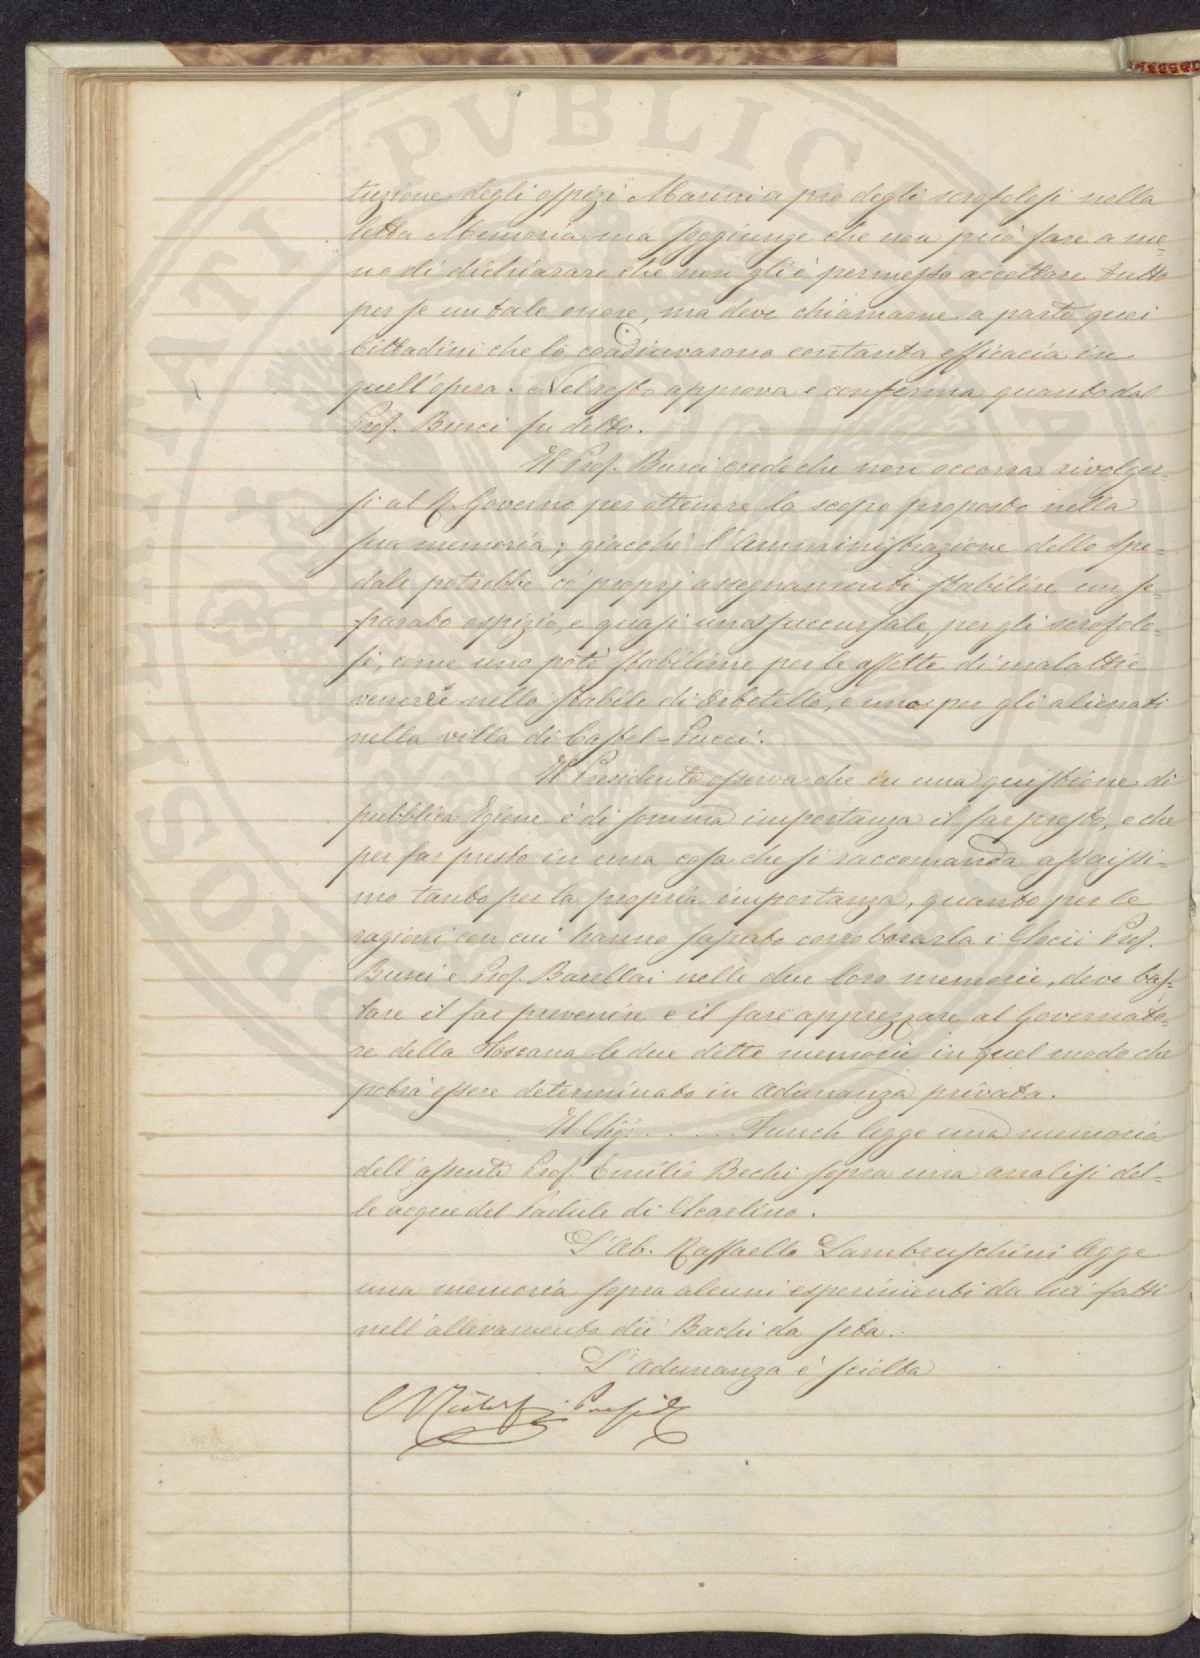 PROSPERITATI PVBLICAE
tuzione degli ospizi Marini a prò degli scrofolosi nella
letta Memoria ma soggiunge che non può fare a me-
no di dichiarare che non gli è permesso accettare tutto
per se un tale onore, ma deve chiamarne a parte quei
Cittadini che lo coadiuvarono con tanta efficacia in
quell'opera. Nel resto approva e conferma quanto dal
Prof. Burci fu detto.
Il Prof. Burci crede che non occorra rivolger-
si al R. Governo per ottenere lo scopo proposto nella
sua memoria; giacchè l'Amministrazione dello Spe-
dale potrebbe co' proprj assegnamenti stabilire un se-
parato ospizio, e quasi una succursale, per gli scrofolo-
si, come uno potè stabilirne per le affette di malattie
veneree nello stabile di Orbetello, e uno per gli alienati
nella villa di Castel-Pucci.
Il Presidente osserva che in una questione di
pubblica Igiene è di somma importanza il far presto, e che
per far presto in una cosa che si raccomanda assaissi-
mo tanto per la propria importanza, quanto per le
ragioni con cui hanno saputo corroborarla i Socii Prof.
Burci e Prof. Barellai nelle due loro memorie, deve bas-
tare il far prevenire e il fare apprezzare al Governato-
re della Toscana le due dette memorie in quel modo che
potrà essere determinato in Adunanza privata.
Il Sig: . . . . . Funck legge una memoria
dell'assente Prof. Emilio Bechi sopra una analisi del-
le acque del Padule di Scarlino.
L'Ab. Raffaello Lambruschini legge
una memoria sopra alcuni esperimenti da lui fatti
nell'allevamento dei Bachi da seta.
L'Adunanza è sciolta
CRidolfi Presid